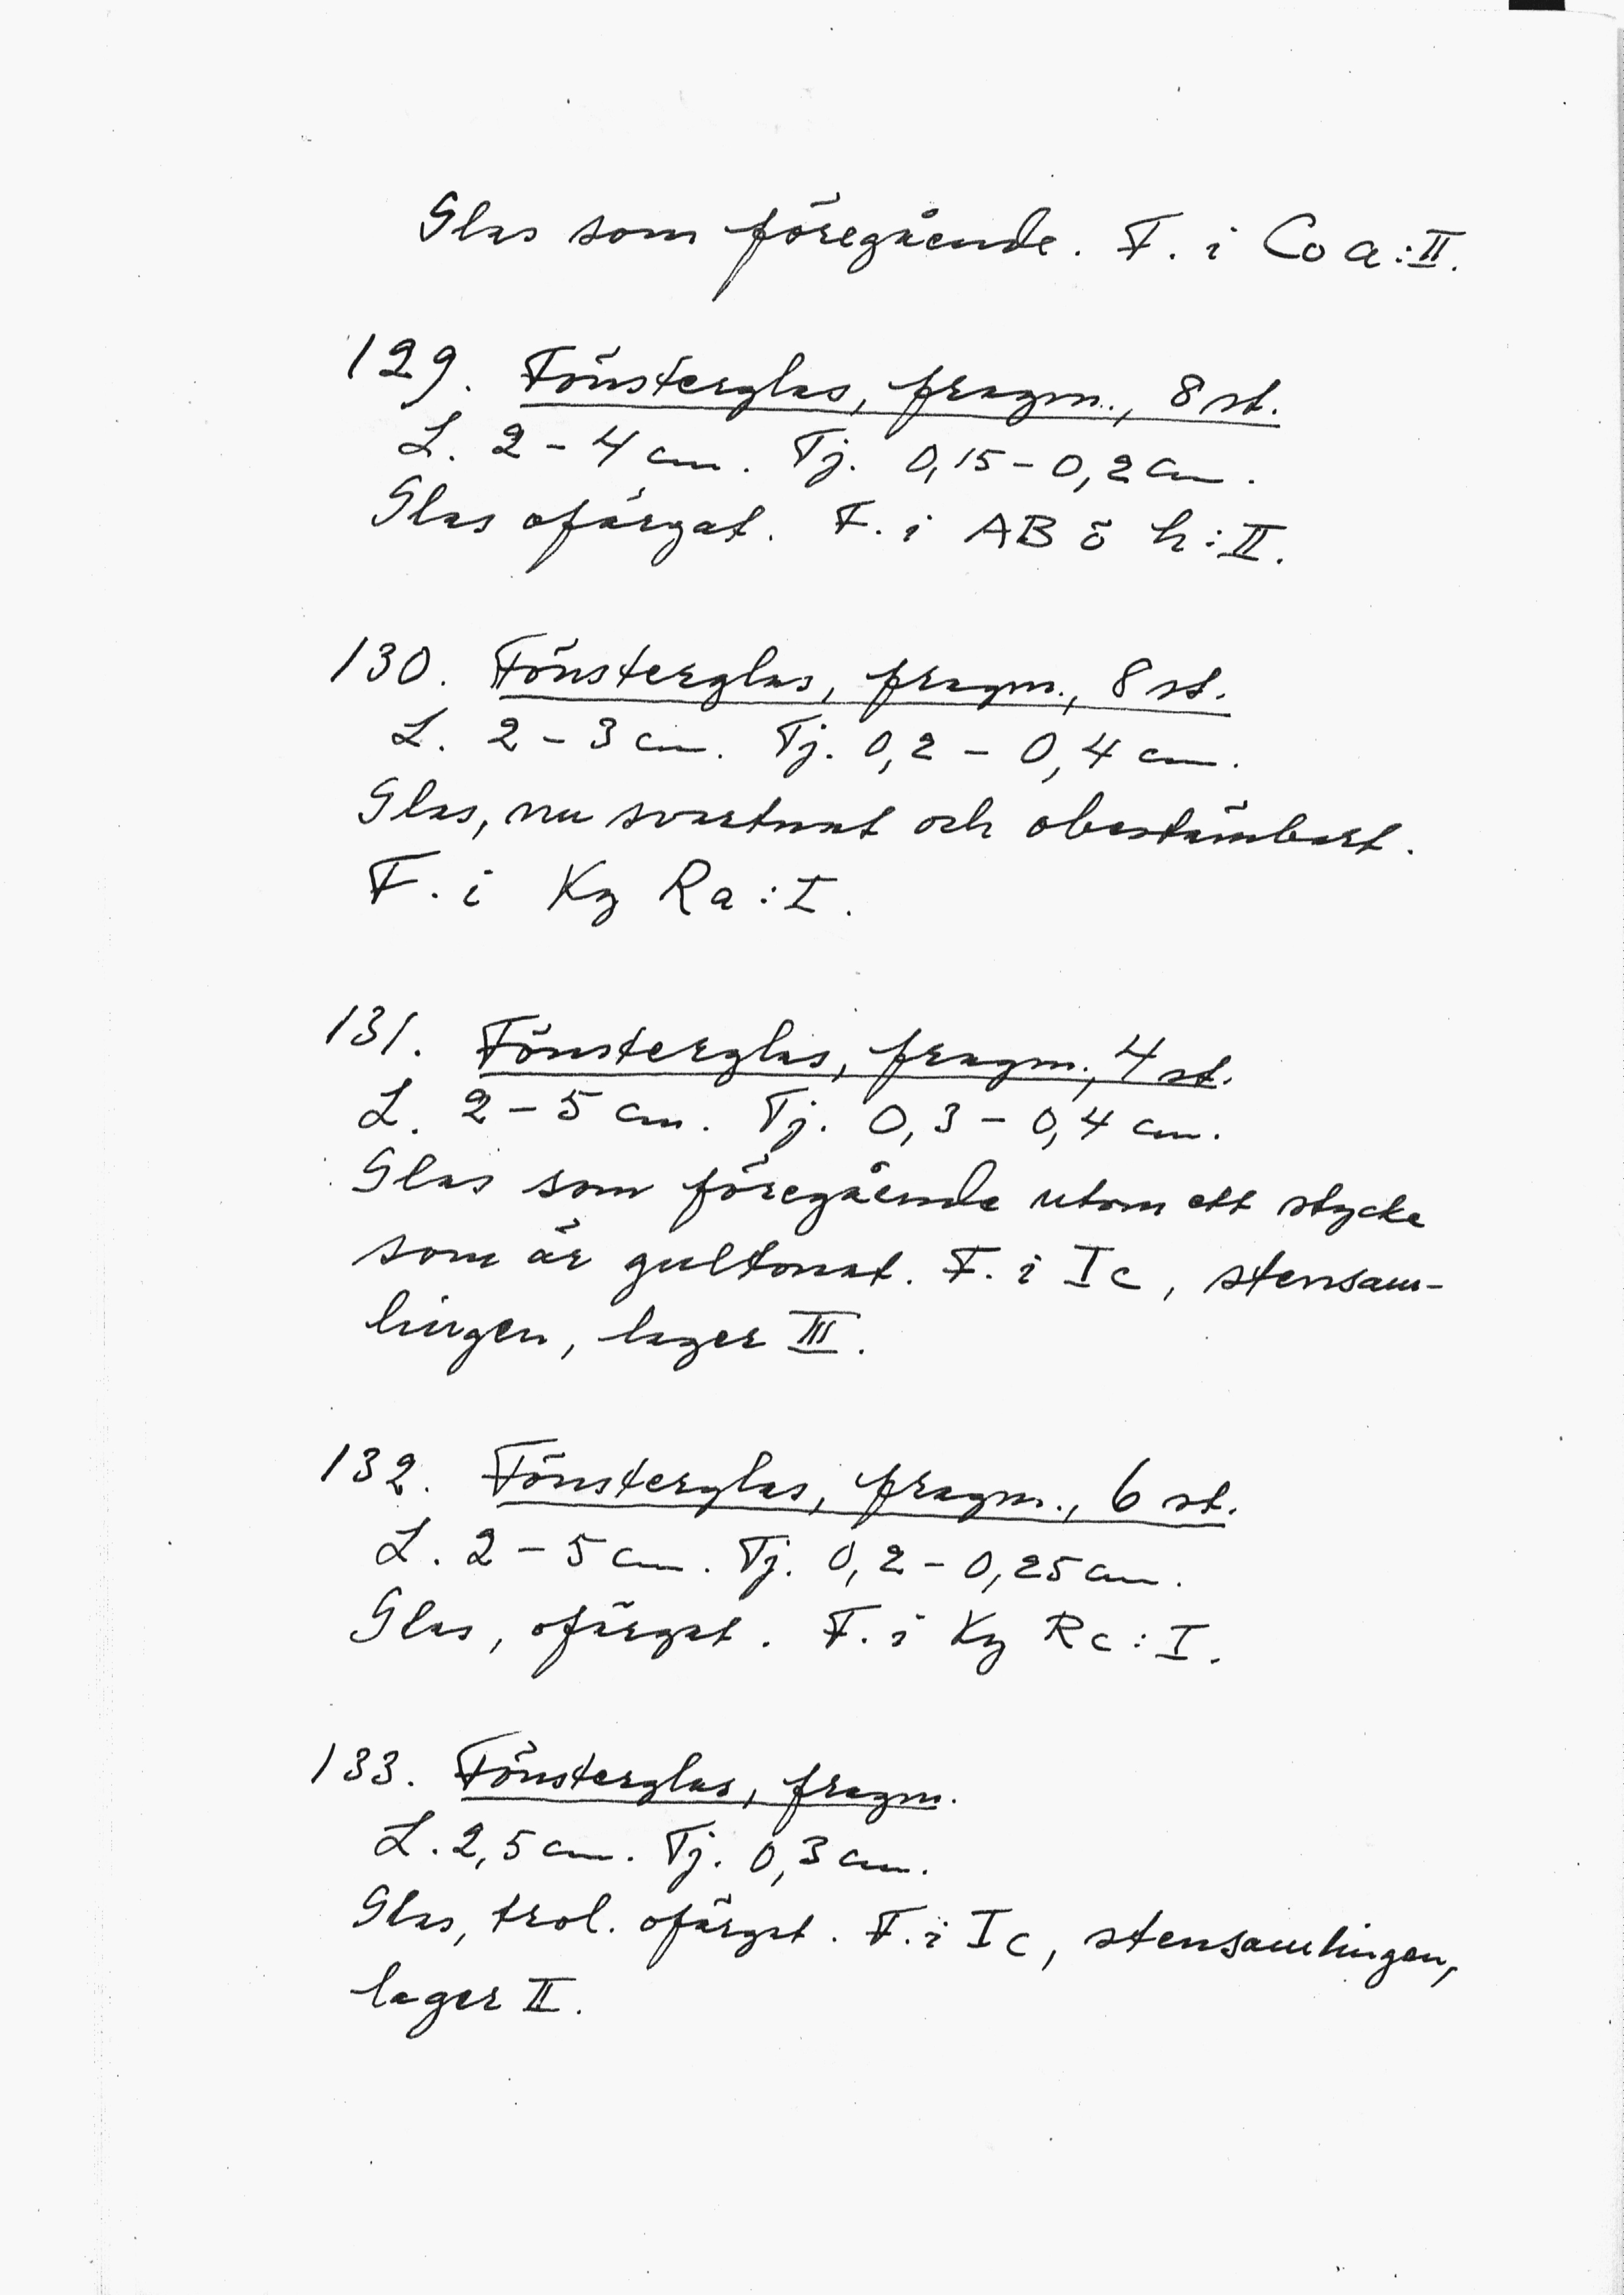 Glas som föregående. F. i Co a:II.
129. Fönsterglas, fragm., 8 st.
L. 2-4 cm. Tj. 0,15-0,2 cm.
Glas ofärgat. F. i AB ö h:II.
130. Fönsterglas, fragm., 8 st.
L. 2-3 cm. Tj. 0,2 - 0,4 cm.
Glas, nu svartnat och obestämbart.
F. i Kg Ra:I.
131. Fönsterglas, fragm., 4 st.
L. 2-5 cm. Tj. 0,3-0,4 cm.
Glas som föregående utom ett stycke
som är gultonat. F. i Ic, stensam-
lingen, lager III.
132. Fönsterglas, fragm., 6 st.
L. 2-5 cm. Tj. 0,2-0,25 cm.
Glas, ofärgat. F. i Kg Rc:I.
133. Fönsterglas, fragm.
L. 2,5 cm. Tj. 0,3 cm.
Glas, trol. ofärgat. F. i Ic, stensamlingen,
lager II.